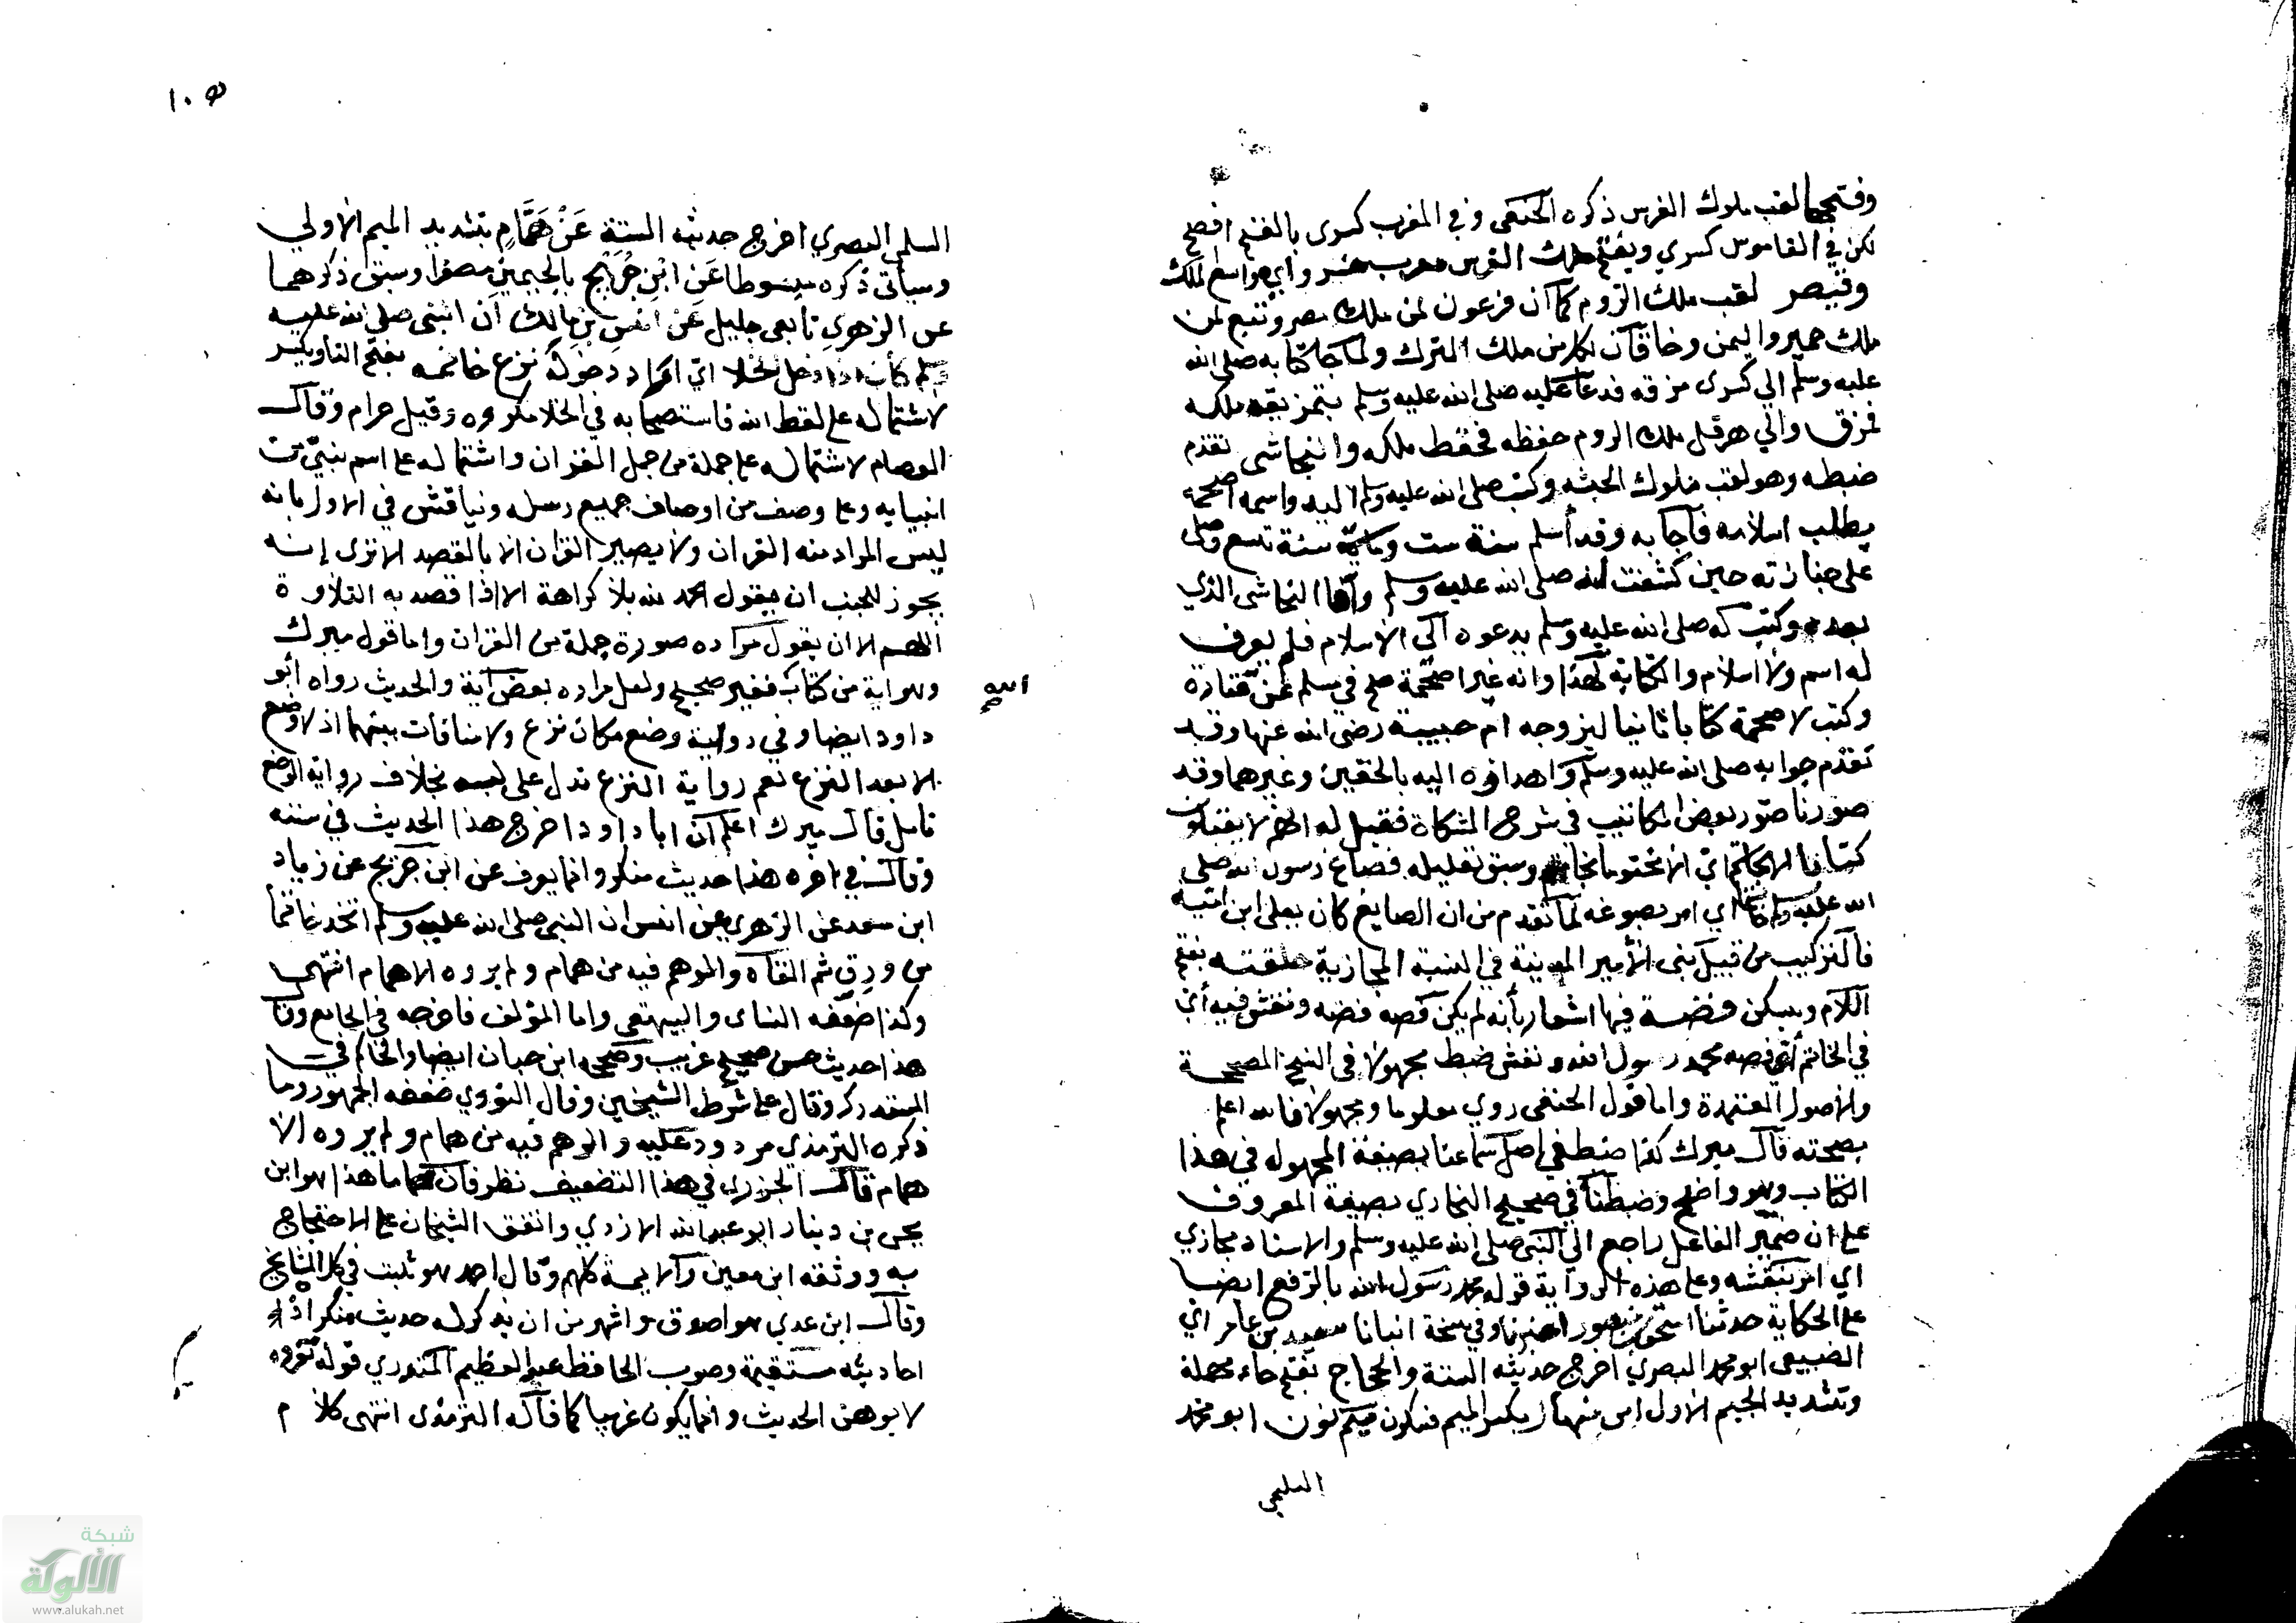 وفتحها لقب ملوك الفرس ذكره الحنفي وفي المغرب كسرى بالفتح افصح
لكن في القاموس كسري ويفتح ملك الفرس معرب خسرو اي واسع الملك
وقيصر لقب ملك الروم كما ان فرعون لمن ملك مصر وتبع لمن
ملك حمير واليمن وخاقان لكل من ملك الترك ولما جا كتابه صلى الله
عليه وسلم الي كسرى مزقه فدعا عليه صلى الله عليه وسلم بتمزيقه ملكه
فمزق والي هرقل ملك الروم حفظه فحفظ ملكه والنجاشي تقدم
ضبطه وهو لقب ملوك الحبشه وكتب صلى الله عليه وسلم اليه واسمه اصحمة
يطلب اسلامه فاجابه وقد أسلم سنة ست ومات سنة تسع وصلى
على جنازته حين كشفت له صلى الله عليه وسلم واما النجاشي الذي
بعده وكتب له صلى الله عليه وسلم يدعوه الي الاسلام فلم يعرف
له اسم ولا اسلام والكتابة لهذا وانه غير اصحمة صح في مسلم عن قتادة
وكتب لاصحمة كتابا ثانيا ليزوجه ام حبيبة رضي الله عنها وقد
تقدم جوابه صلى الله عليه وسلم واهداوه اليه بالخفين وغيرهما وقد
صورنا صور بعض المكاتيب في شرح المشكاة فقيل له انهم لا يقبلون
كتابا الا بخاتم اي الا مختوما بخاتم وسبق تعليله فصاغ رسول الله صلى
الله عليه وسلم خاتما اي امر بصوغه لما تقدم من ان الصايغ كان يعلى ابن امية
فالتركيب من قبيل بنى الأمير المدينة في النسبة المجازية حلقته بفتح
اللام ويسكن فضة فيها اشعار بأنه لم يكن فصه فضه ونقش فيه أي
في الخاتم أي فصه محمد رسول الله ونقش ضبط مجهولا في النسخ المصححة
والاصول المعتمدة واما قول الحنفي روي معلوما ومجهولا فالله اعلم
بصحته قال ميرك كذا ضبط في اصل سماعنا بصيغة المجهول في هذا
الكتاب وهو واضح وضبطنا في صحيح البخاري بصيغة المعروف
على ان ضمير الفاعل راجع الي النبي صلى الله عليه وسلم والاسناد مجازي
اي امر بنقشه وعلى هذه الرواية قوله محمد رسول الله بالرفع ايضا
على الحكاية حدثنا اسحق بن منصور اخبرنا وفي نسخة انبانا سعيد بن عامر اي
الضبيعي ابو محمد البصري اخرج حديثه الستة والحجاج بفتح حاء مهملة
وتشديد الجيم الاول ابن منهال بكسر الميم فسكون ابو محمد
السلمي
١٠٥
السلمي البصري اخرج حديثه الستة عَنْ هَمَّامٍ بتشديد الميم الاولي
وسياتي ذكره مبسوطا عن ابْنِ جُرَيْج بالجيمين مصغرا وسبق ذكرهما
عن الزهري تابعي جليل عن انس بن مالك ان النبي صلى الله عليه
وسلم كان اذا دخل الخلا اي اراد دخوله نزع خاتمه بفتح التا ويكسر
لاشتماله على لفظ الله فاستصحابه في الخلا مكروه وقيل حرام وقال
العصام لاشتماله على جملة من جمل القران واشتماله على اسم نبي من
انبيايه وعلى وصف من اوصاف جميع رسله ونياقش في الاول بانه
ليس المراد منه القران ولا يصير القران الا بالقصد الا ترى إنه
يجوز للجنب ان يقول الحمد لله بلا كراهة الا اذا قصد به التلاوة
اللهم الا ان يقول مراده صورة جملة من القران واما قول ميرك
وهو اية من كتاب فغير صحيح ولعل مراده بعض اية والحديث رواه أبو
الله
صح
داود ايضا وفي رواية وضع مكان نزع ولا منافات بينهما اذ لا وضع
الا بعد النزع نعم رواية النزع تدل على لبسه بخلاف رواية الوضع
تامل قال ميرك اعلم ان ابا داود اخرج هذا الحديث في سننه
وقال في اخره هذا حديث منكر وانما يعرف عن ابن جريج عن زياد
ابن سعد عن الزهري عن انس ان النبي صلى الله عليه وسلم اتخذ خاتما
من ورق ثم القاه والوهم فيه من همام ولم يروه الا همام انتهى
وكذا ضعفه النساى والبيهقي واما المؤلف فاخرجه في الجامع وقال
هذا حديث حسن صحيح غريب وصححه ابن حبان ايضا والحاكم في
المستدرك وقال على شرط الشيخين وقال النووي ضعفه الجمهور وما
ذكره الترمذي مردود عليه والوهم فيه من همام ولم يروه الا
همام قال الجزري في هذا التضعيف نظر فان هماما هذا هو ابن
يحيى بن دينار ابو عبد الله الازدي واتفق الشيخان على الاحتجاج
به ووثقه ابن معين والايمة كلهم وقال احمد هو ثبت في كل المشايخ
وقال ابن عدي هو اصدق واشهر من ان يذكر له حديث منكر اذ
احاديثه مستقيمة وصوب الحافظ عبد العظيم المنذري قوله تفرده
لا يوهن الحديث وانما يكون غريبا كما قاله الترمذي انتهى كلام